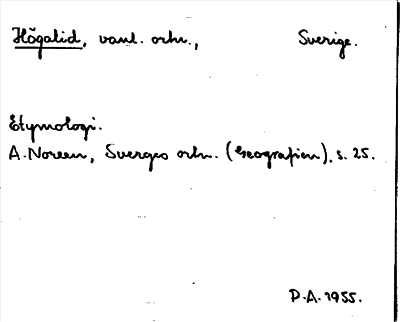 Högalid, vanl. ortn., Sverige.
Etymologi.
A. Noreen, Sverges ortn. (Geografien), s. 25.
P.A. 1955.